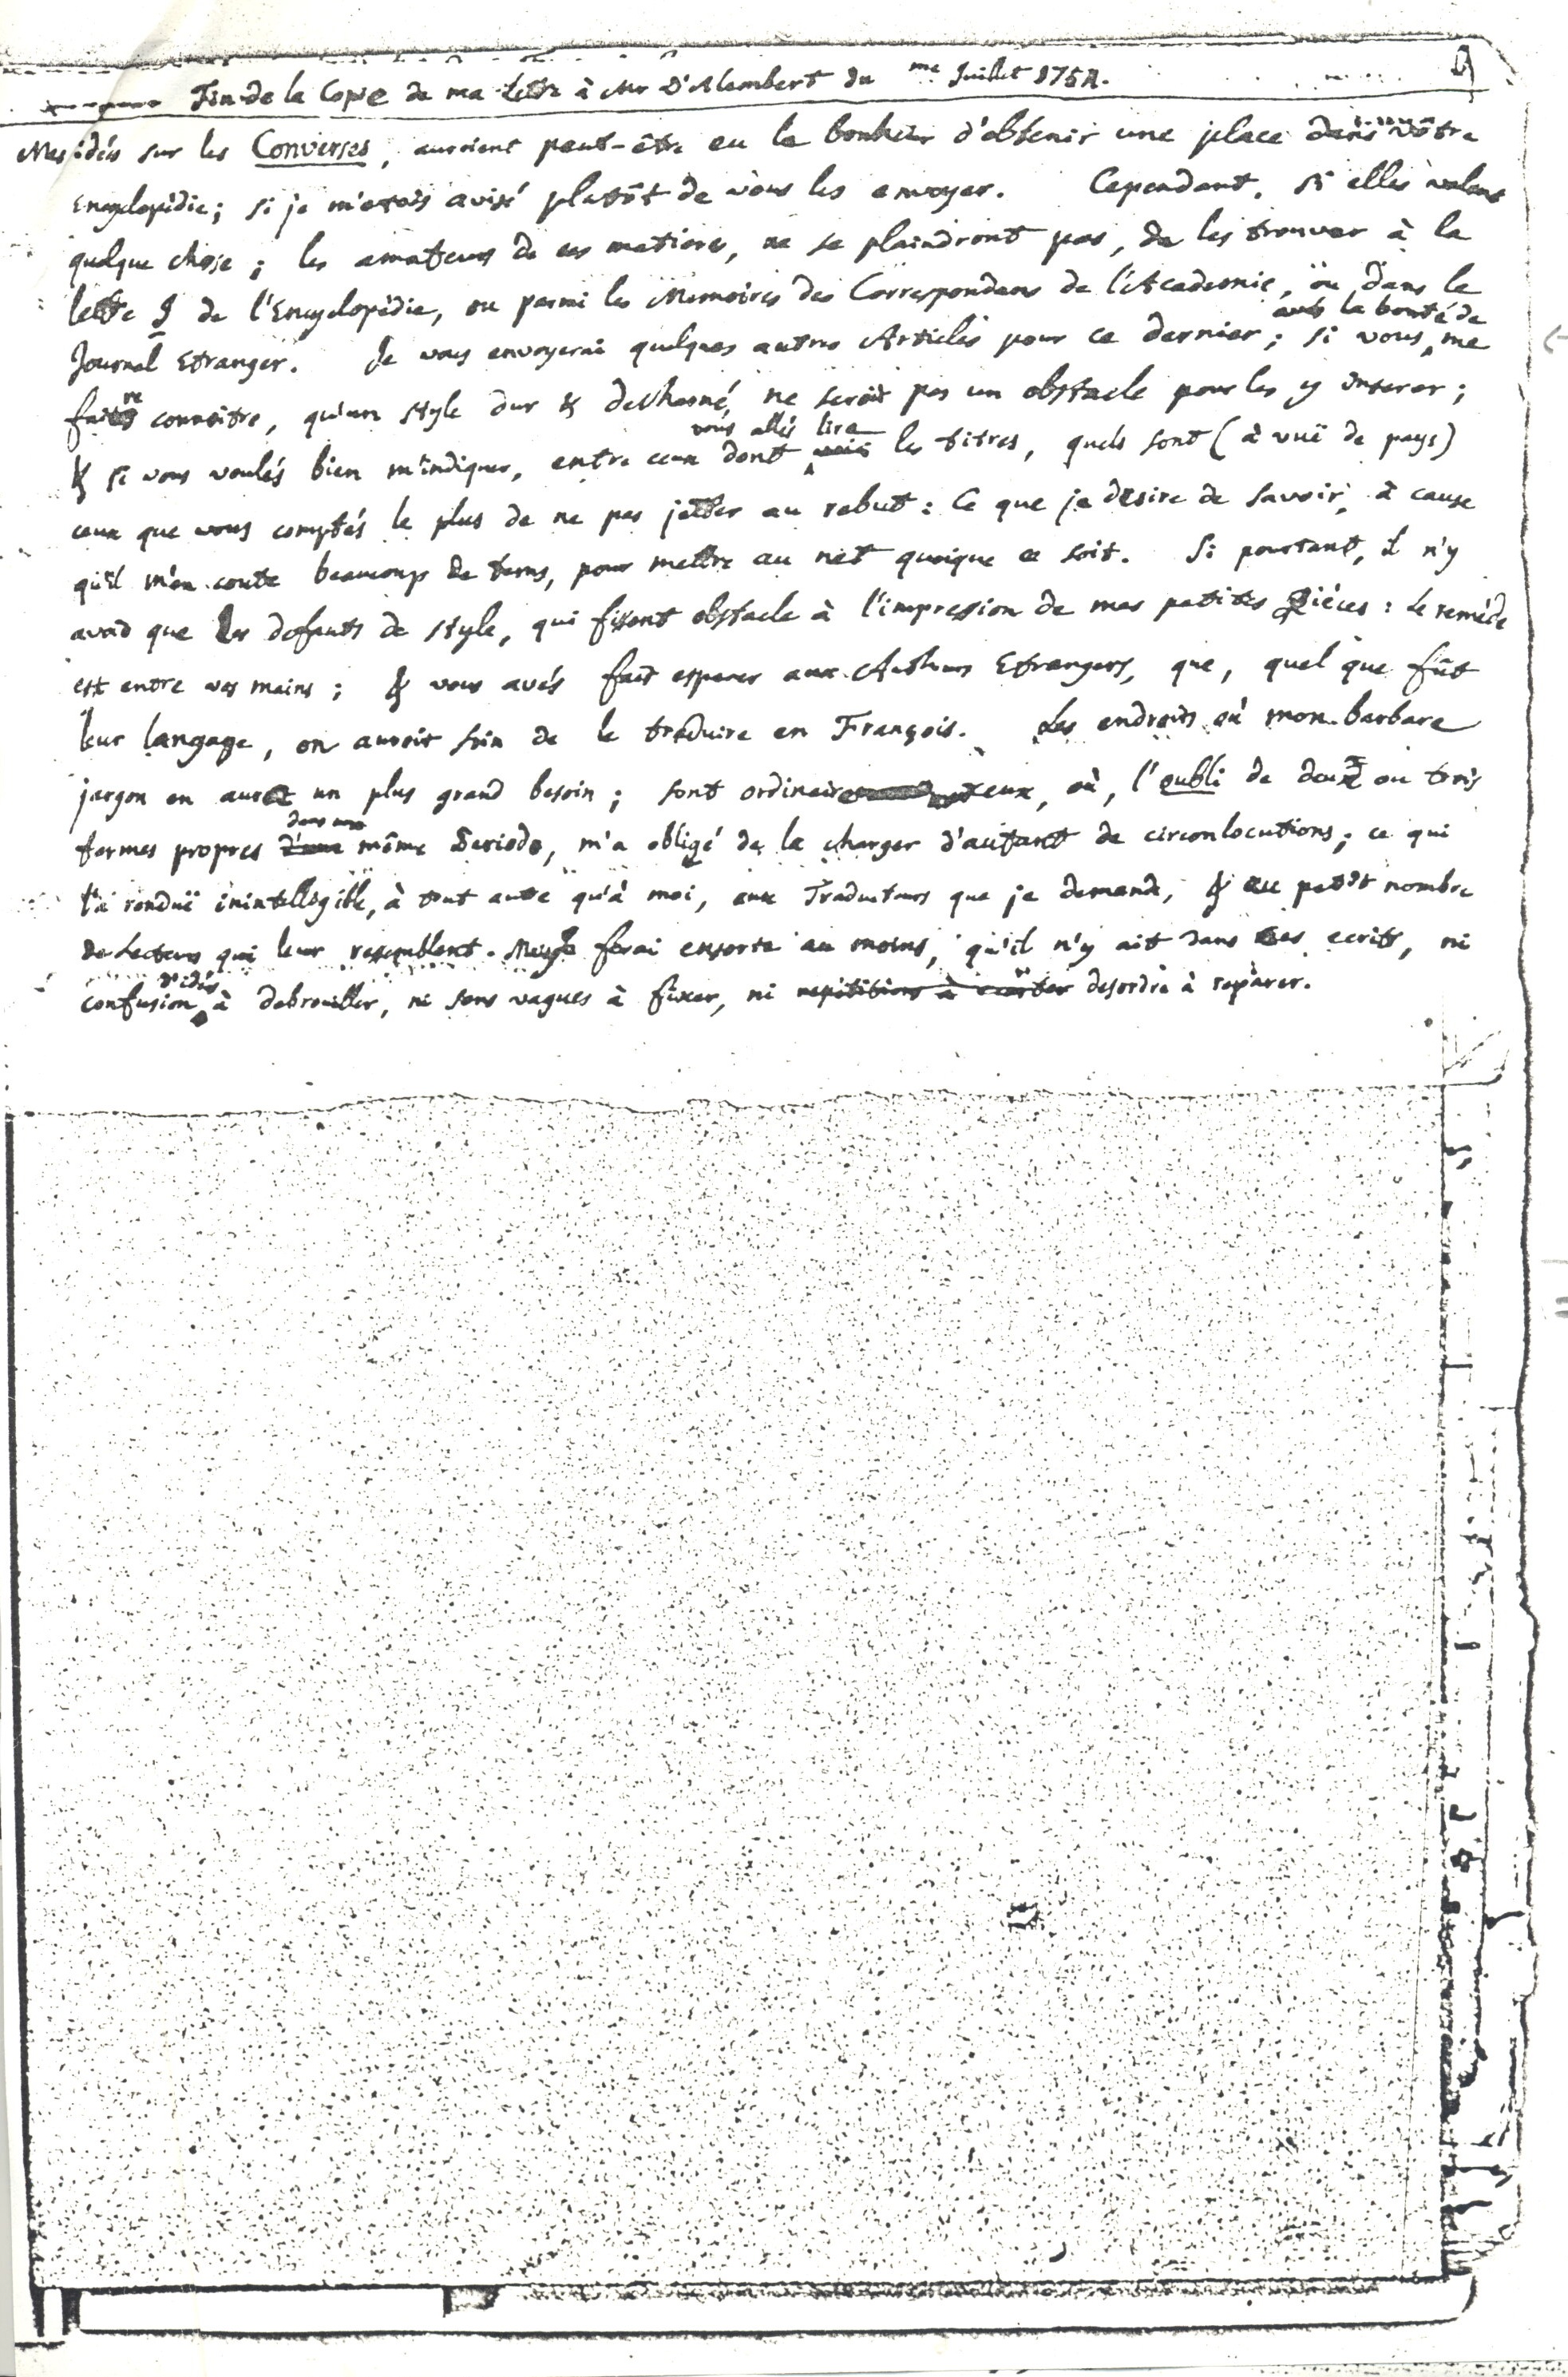 Fin de la Copie de ma Lettre à Mr D'Alembert du me Juillet 1754.
Mes idées sur les Converses, auroient peut-être eu le bonheur d'obtenir une place dans vôtre
Encyclopédie; si je m'étois avisé plutôt de vous les envoyer. Cependant, si elles valent
quelque chose; les amateurs de ces matieres, ne se plaindront pas, de les trouver à la
lettre I de l'Encyclopédie, ou parmi les Memoires des Correspondans de l'Academie, ou dans le
avés la bonté de
Journal Etranger. Je vous envoyerai quelques autres Articles pour ce dernier; si vous me
faire connoitre, qu'un style dur & decharné, ne seroit pas un obstacle pour les y inserer;
vous allés lire
& si vous voulés bien m'indiquer, entre ceux dont les titres, quels sont (à vuë de pays)
ceux que vous comptés le plus de ne pas jetter au rebut: Ce que je desire de savoir, à cause
qu'il m'en coute beaucoup de tems, pour mettre au net quoique ce soit. Si pourtant, il n'y
avoit que les defauts de style, qui fissent obstacle à l'impression de mes petites Piéces: Le reméde
est entre vos mains; & vous avés fait esperer aux Autheurs Etrangers, que, quel que fût
leur langage, on auroit soin de le traduire en François. Les endroits où mon barbare
jargon en aura un plus grand besoin; sont ordinairement ceux, où, l'oubli de deux ou trois
dans une
termes propres d'une même Periode, m'a obligé de la charger d'autant de circonlocutions; ce qui
l'a renduë inintelligible, à tout autre qu'à moi, aux Traducteurs que je demande, & au petit nombre
de Lecteurs qui leur ressemblent. Mais je ferai ensorte au moins, qu'il n'y ait dans ces ecrits, ni
d'idées
confusion à debrouiller, ni sens vagues à fixer, ni repititions à ecarter desordre à reparer.